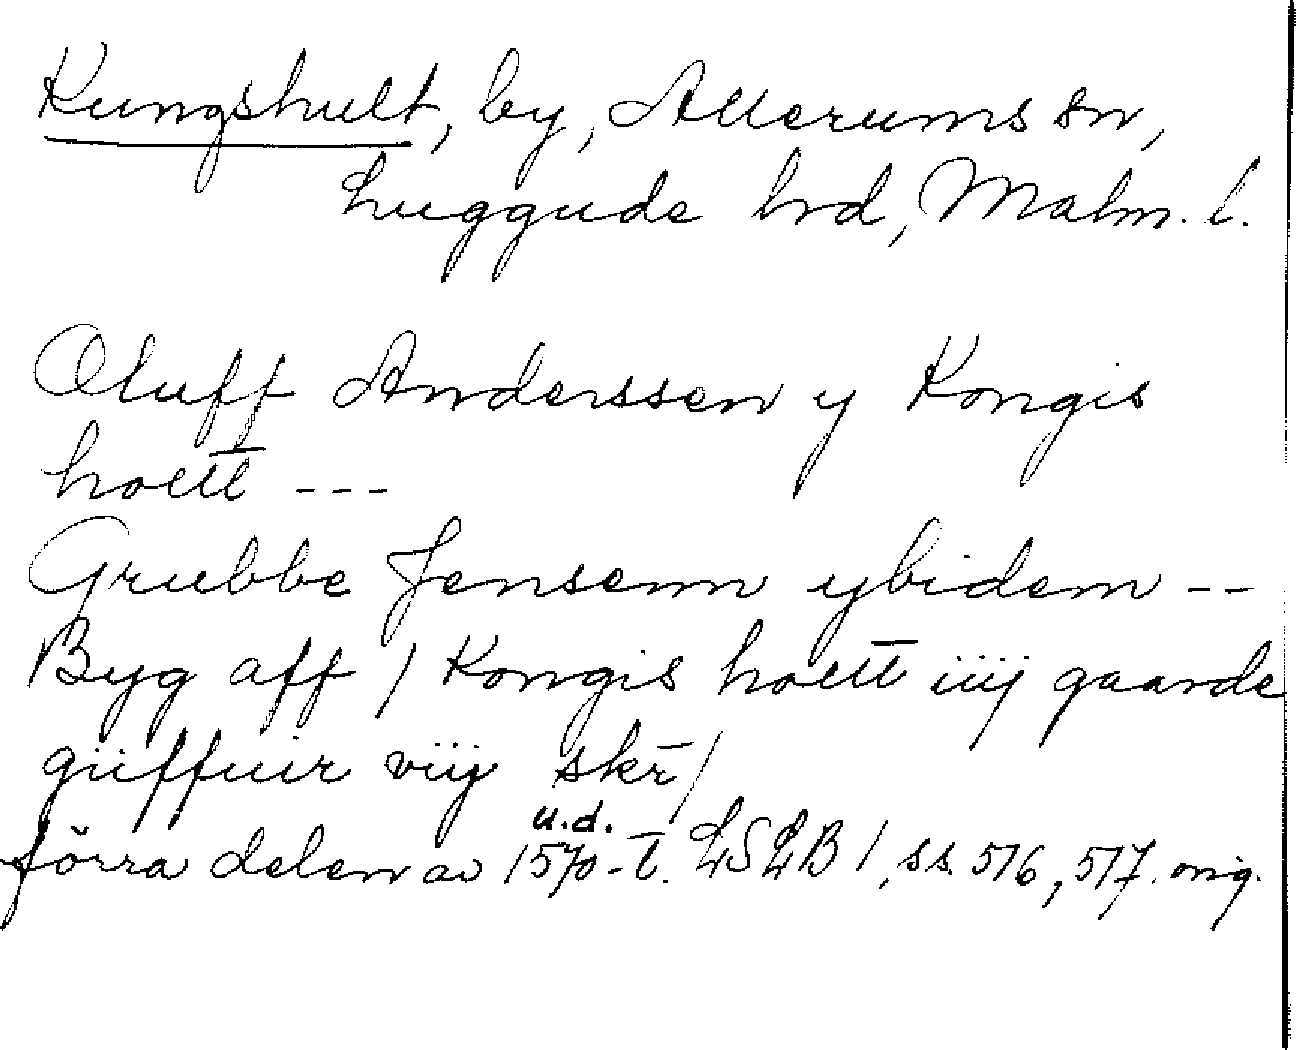 Kungshult, by, Allerums sn,
Luggude hrd, Malm. l.
Oluff Anderssen y Kongis
hollt̅ ---
Grubbe Jensenn ybidem --
Byg aff / Kongis hollt̅ iiij gaarde
giiffuir viij skr̅ /
u.d.
förra delen av 1570-t̅. LSLB 1, ss. 516, 517. orig.